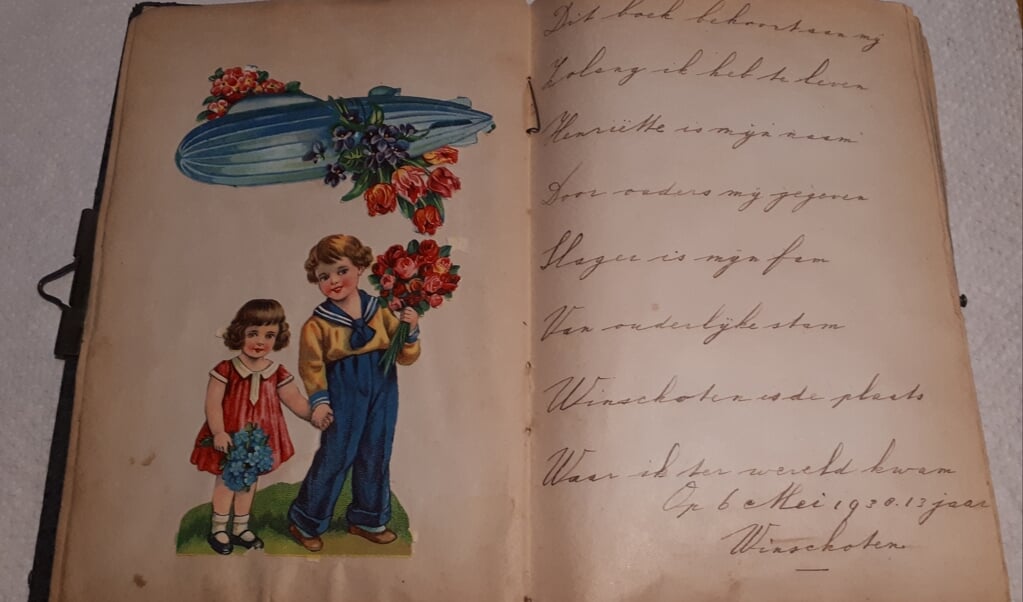 Dit boek behoort aan mij
Zolang ik heb te leven
Henriëtte is mijn naam
Door ouders mij gegeven
Slager is mijn fam
Van ouderlijke stam
Winschoten is de plaats
Waar ik ter wereld kwam
Op 6 Mei 1930. 13 jaar
Winschoten.